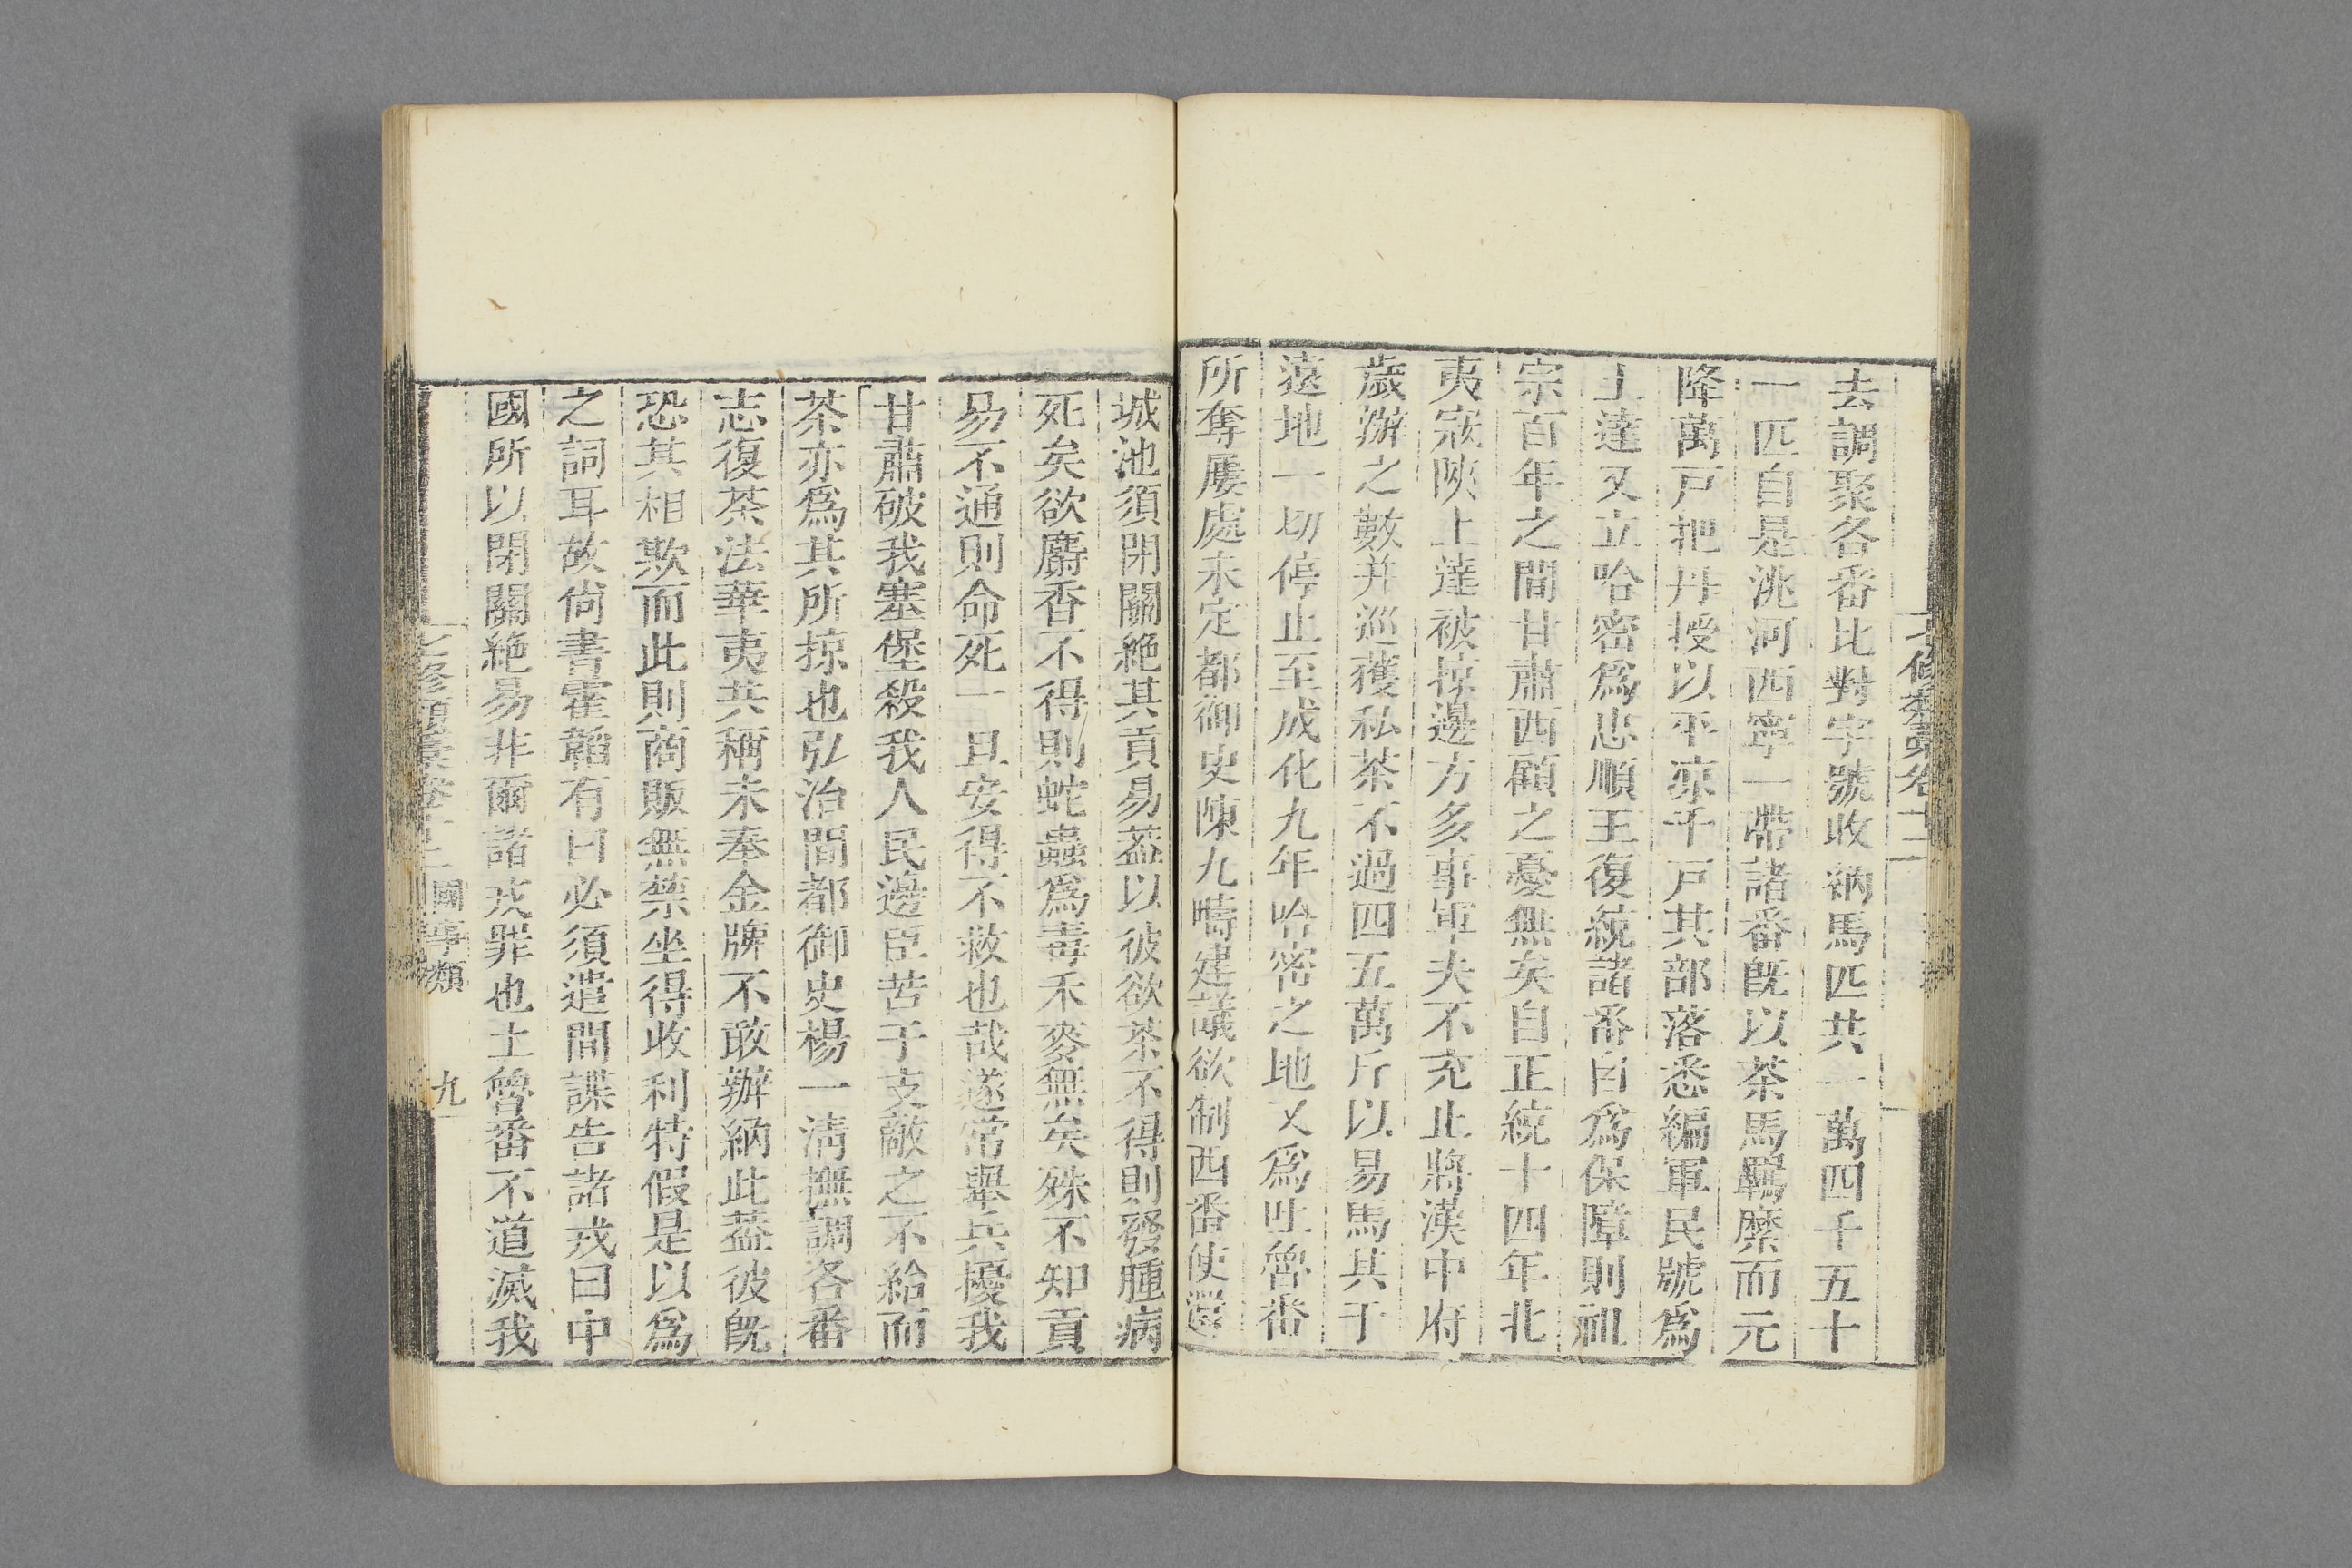 去調聚各番比對字號收納馬匹共一萬四千五十
一匹自是洮河西寧一帶諸番旣以茶馬羈縻而元
降萬戸把丹授以平凉千戸其部落悉編軍民號爲
土達又立哈密爲忠順王復統諸番自爲保障則祖
宗百年之間甘肅西顧之憂無矣自正統十四年北
夷寇陜土達被掠邊方多事軍夫不充止將漢中府
歲辦之數并巡獲私茶不過四五萬斤以易馬其于
遠地一切停止至成化九年哈密之地又爲吐魯番
所奪屢處未定都御史陳九疇建議欲制西番使還
城池須閉關絶其貢易葢以彼欲茶不得則發腫病
死矣欲麝香不得則蛇蟲爲毒禾麥無矣殊不知貢
易不通則命死一旦安得不救也哉遂常舉兵擾我
甘肅破我塞堡殺我人民邊臣苦于支敵之不給而
茶亦爲其所掠也弘治間都御史楊一清撫調各番
志復茶法華夷共稱未奉金牌不敢辦納此葢彼旣
恐其相欺而此則商販無禁坐得收利特假是以爲
之詞耳故尙書霍韜有曰必須遣間諜告諸戎曰中
國所以閉關絶易非爾諸戎罪也土魯番不道滅我
七修類藁卷十二 國事類 九